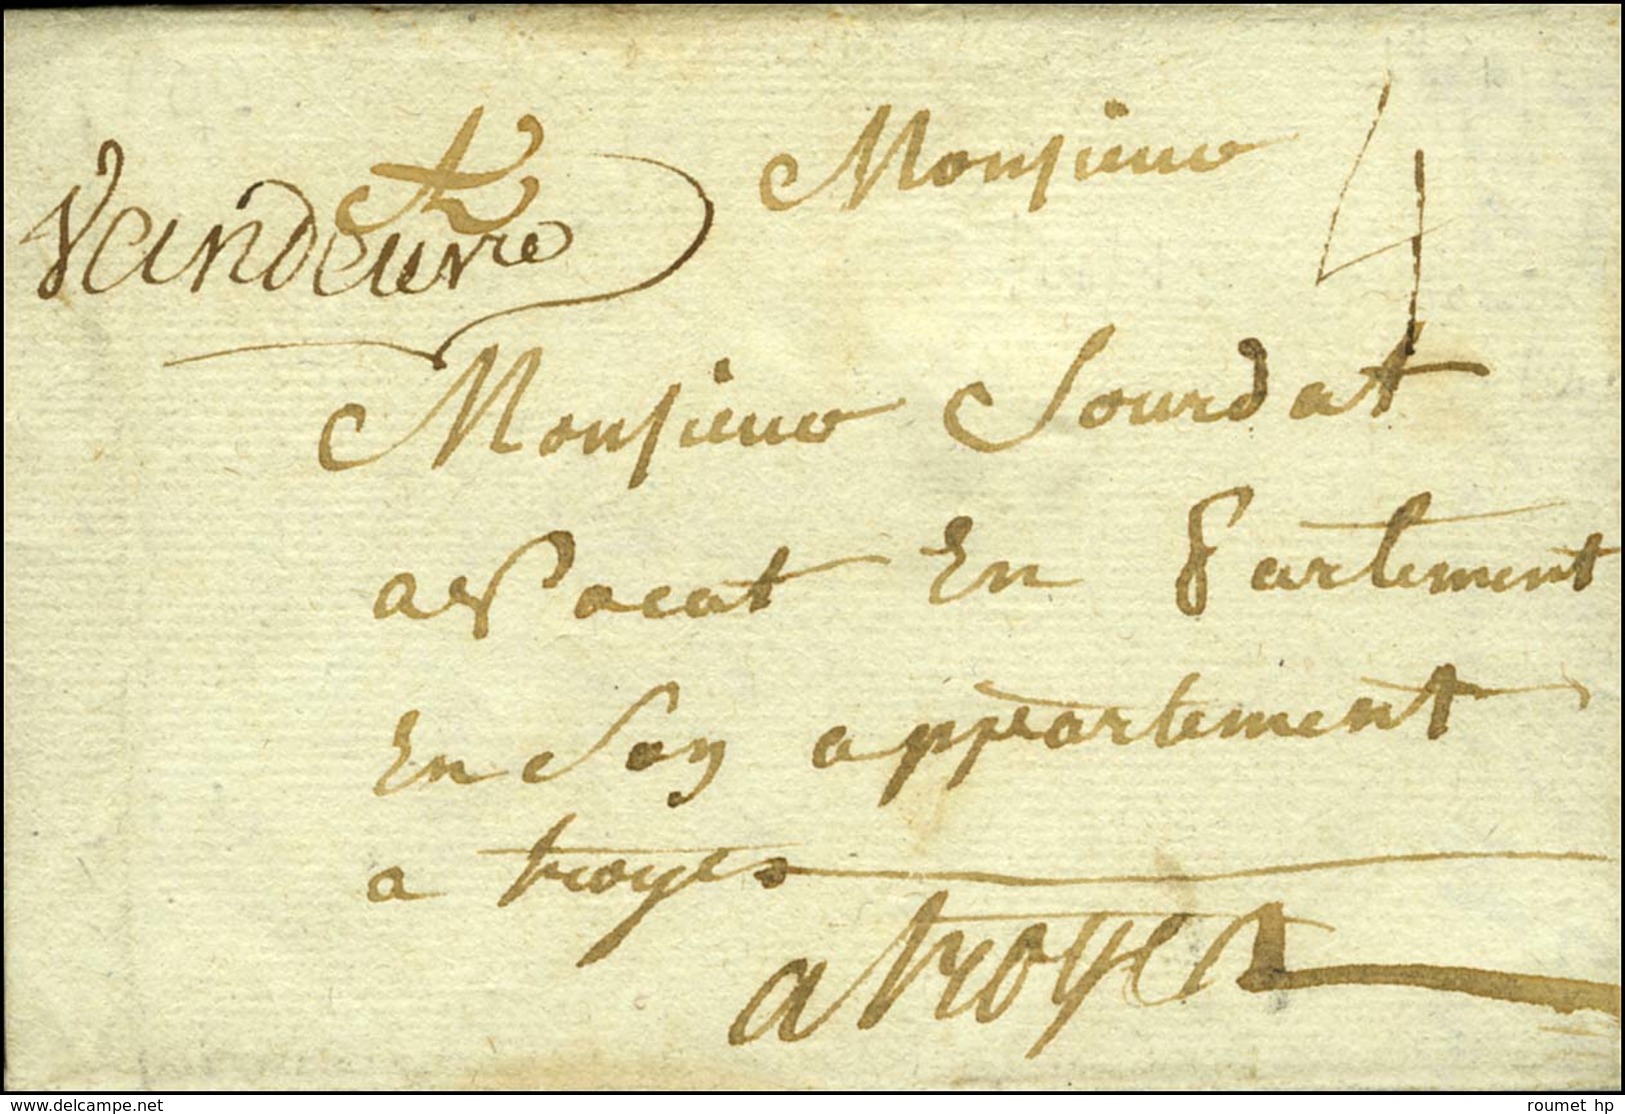 Vandeuvre
A Monsieur
4
Monsieur Sourdat
avocat en Partement
en son appartement
a troyes
a troyes
www.delcampe.net
roumet hp